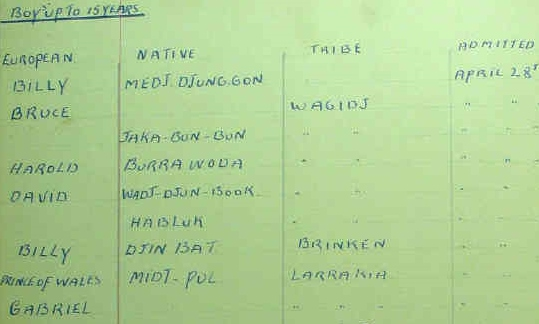 BOYS UP TO 15 YEARS
EUROPEAN NATIVE TRIBE ADMITTED
BILLY MEDJ. DJUNG. GON APRIL 28
BRUCE WAGIDJ " "
JAKA-BUN-BUN " " " "
HAROLD BURRA WODA " " " "
DAVID WADJ-DJUN-BOOK " " " "
HABLUK " " " "
BILLY DJIN BAT BRINKEN " "
PRINCE OF WALES MIDT-PUL LARRAKIA " "
GABRIEL " " " " "